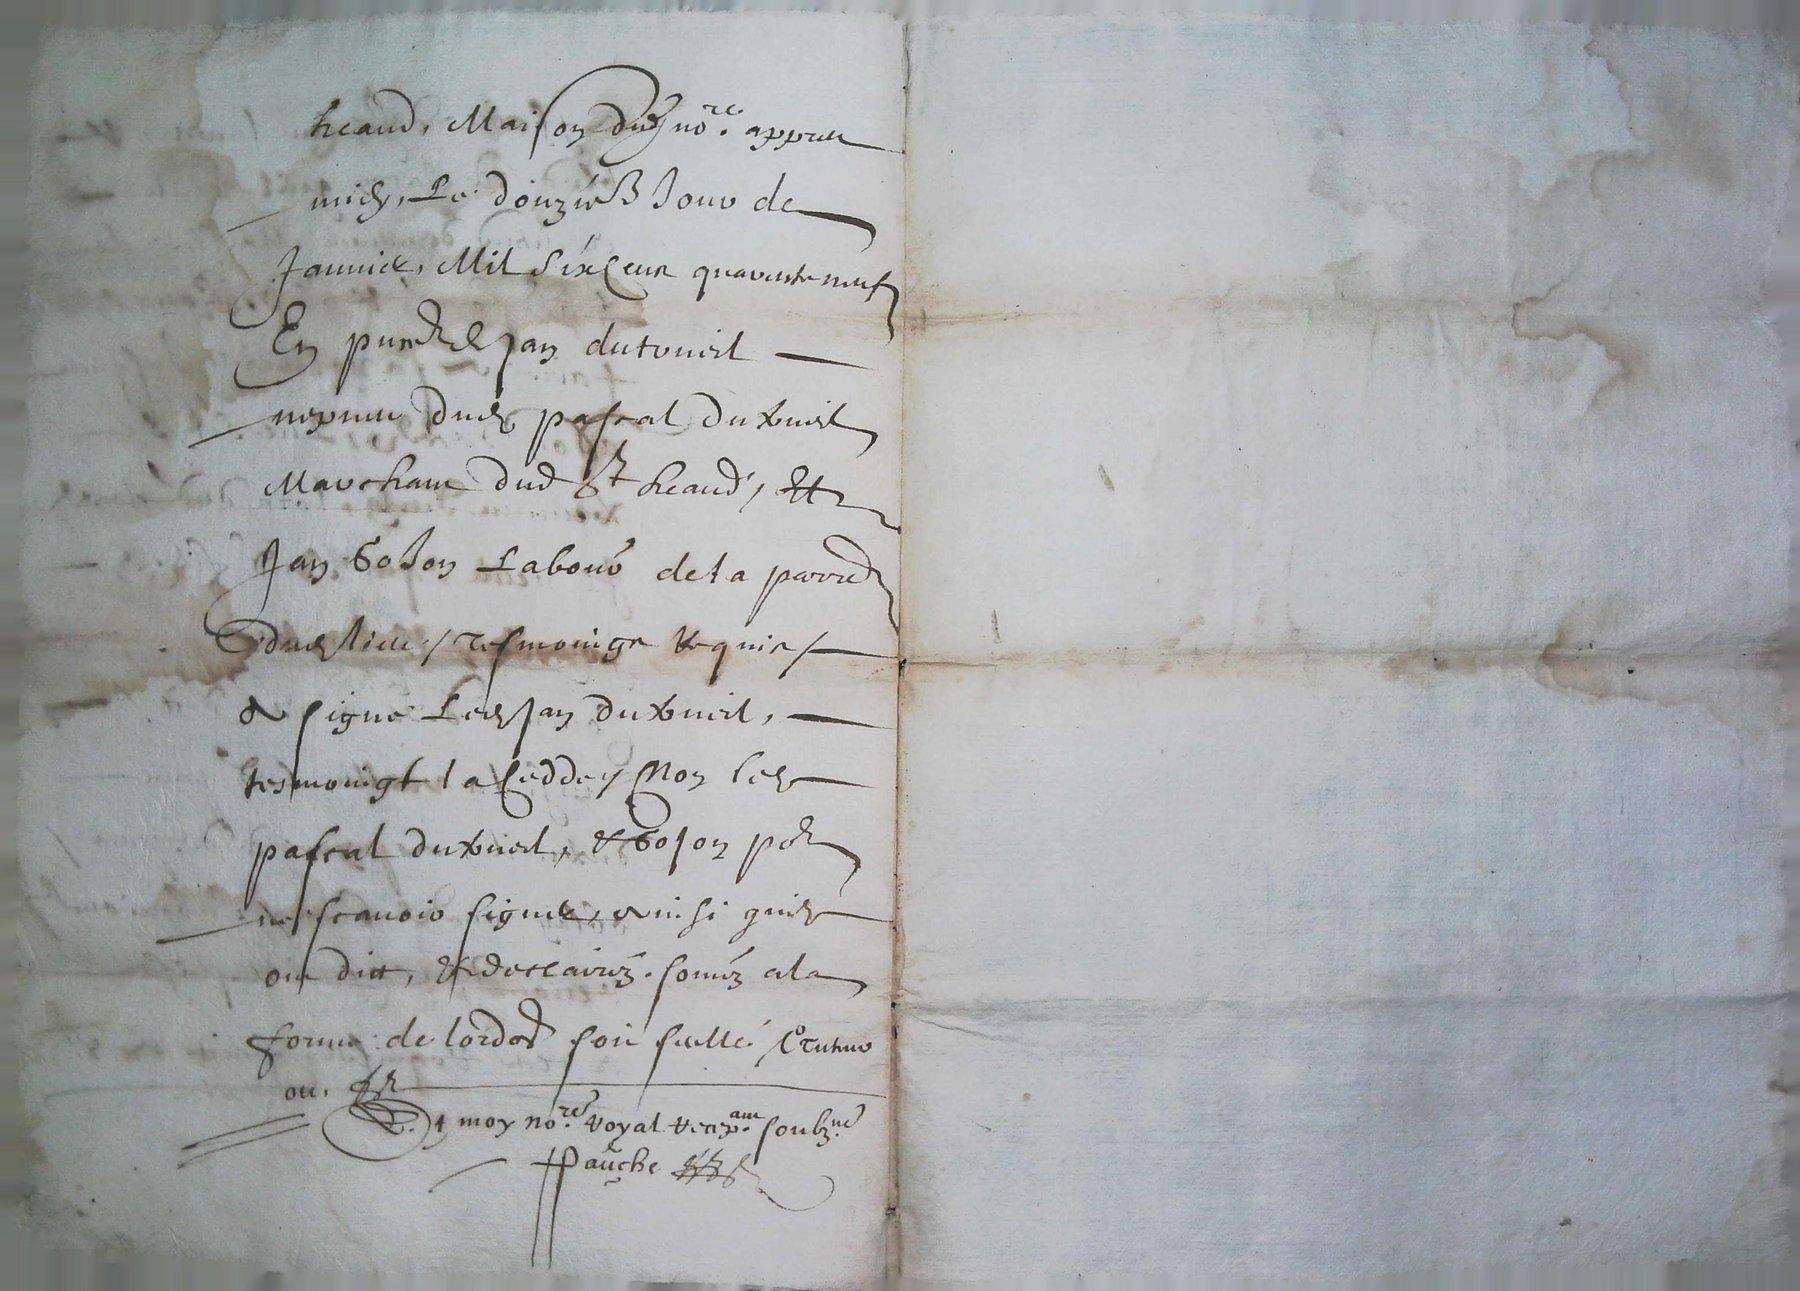 heand, Maison dud no.re appres
midy, Le douzies Jour de
Janvier, Mil six Cens quarente neuf
En pnce de Jan dutreuil
nepveu dud pascal Dutreuil
Marchant Dud St heand, Et
Jan Jo Labour de la parr
dud lieu / tesmoings requis /
& signe Led Jan Dutreuil,
tesmoingt la Cedde / Non led
pascal dutreuil, & pour
ne scavoir signer, ainsi quilz
ont dict, & desclairez. somez a la
forme de lord soit scelle
ou.
Et moy no.re royal recep.ant soubz.ne
Pauche